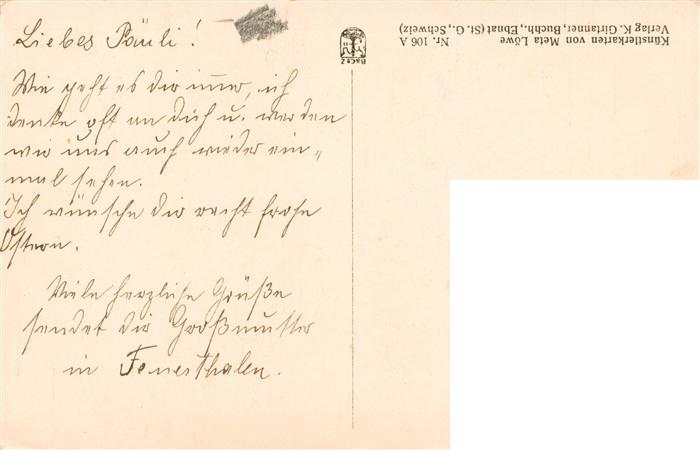 Liebes Päuli!
Wie geht es dir immer, ich
denke oft an dich u. werden
wir uns auch wieder ein=
mal sehen.
Ich wünsche dir recht frohe
Ostern.
Viele herzliche Grüße
sendet dir Großmutter
in Feuerthalen.
Künstlerkarten von Meta Löwe Nr. 106 A
Verlag K. Girtanner, Buchh., Ebnat (St. G., Schweiz)